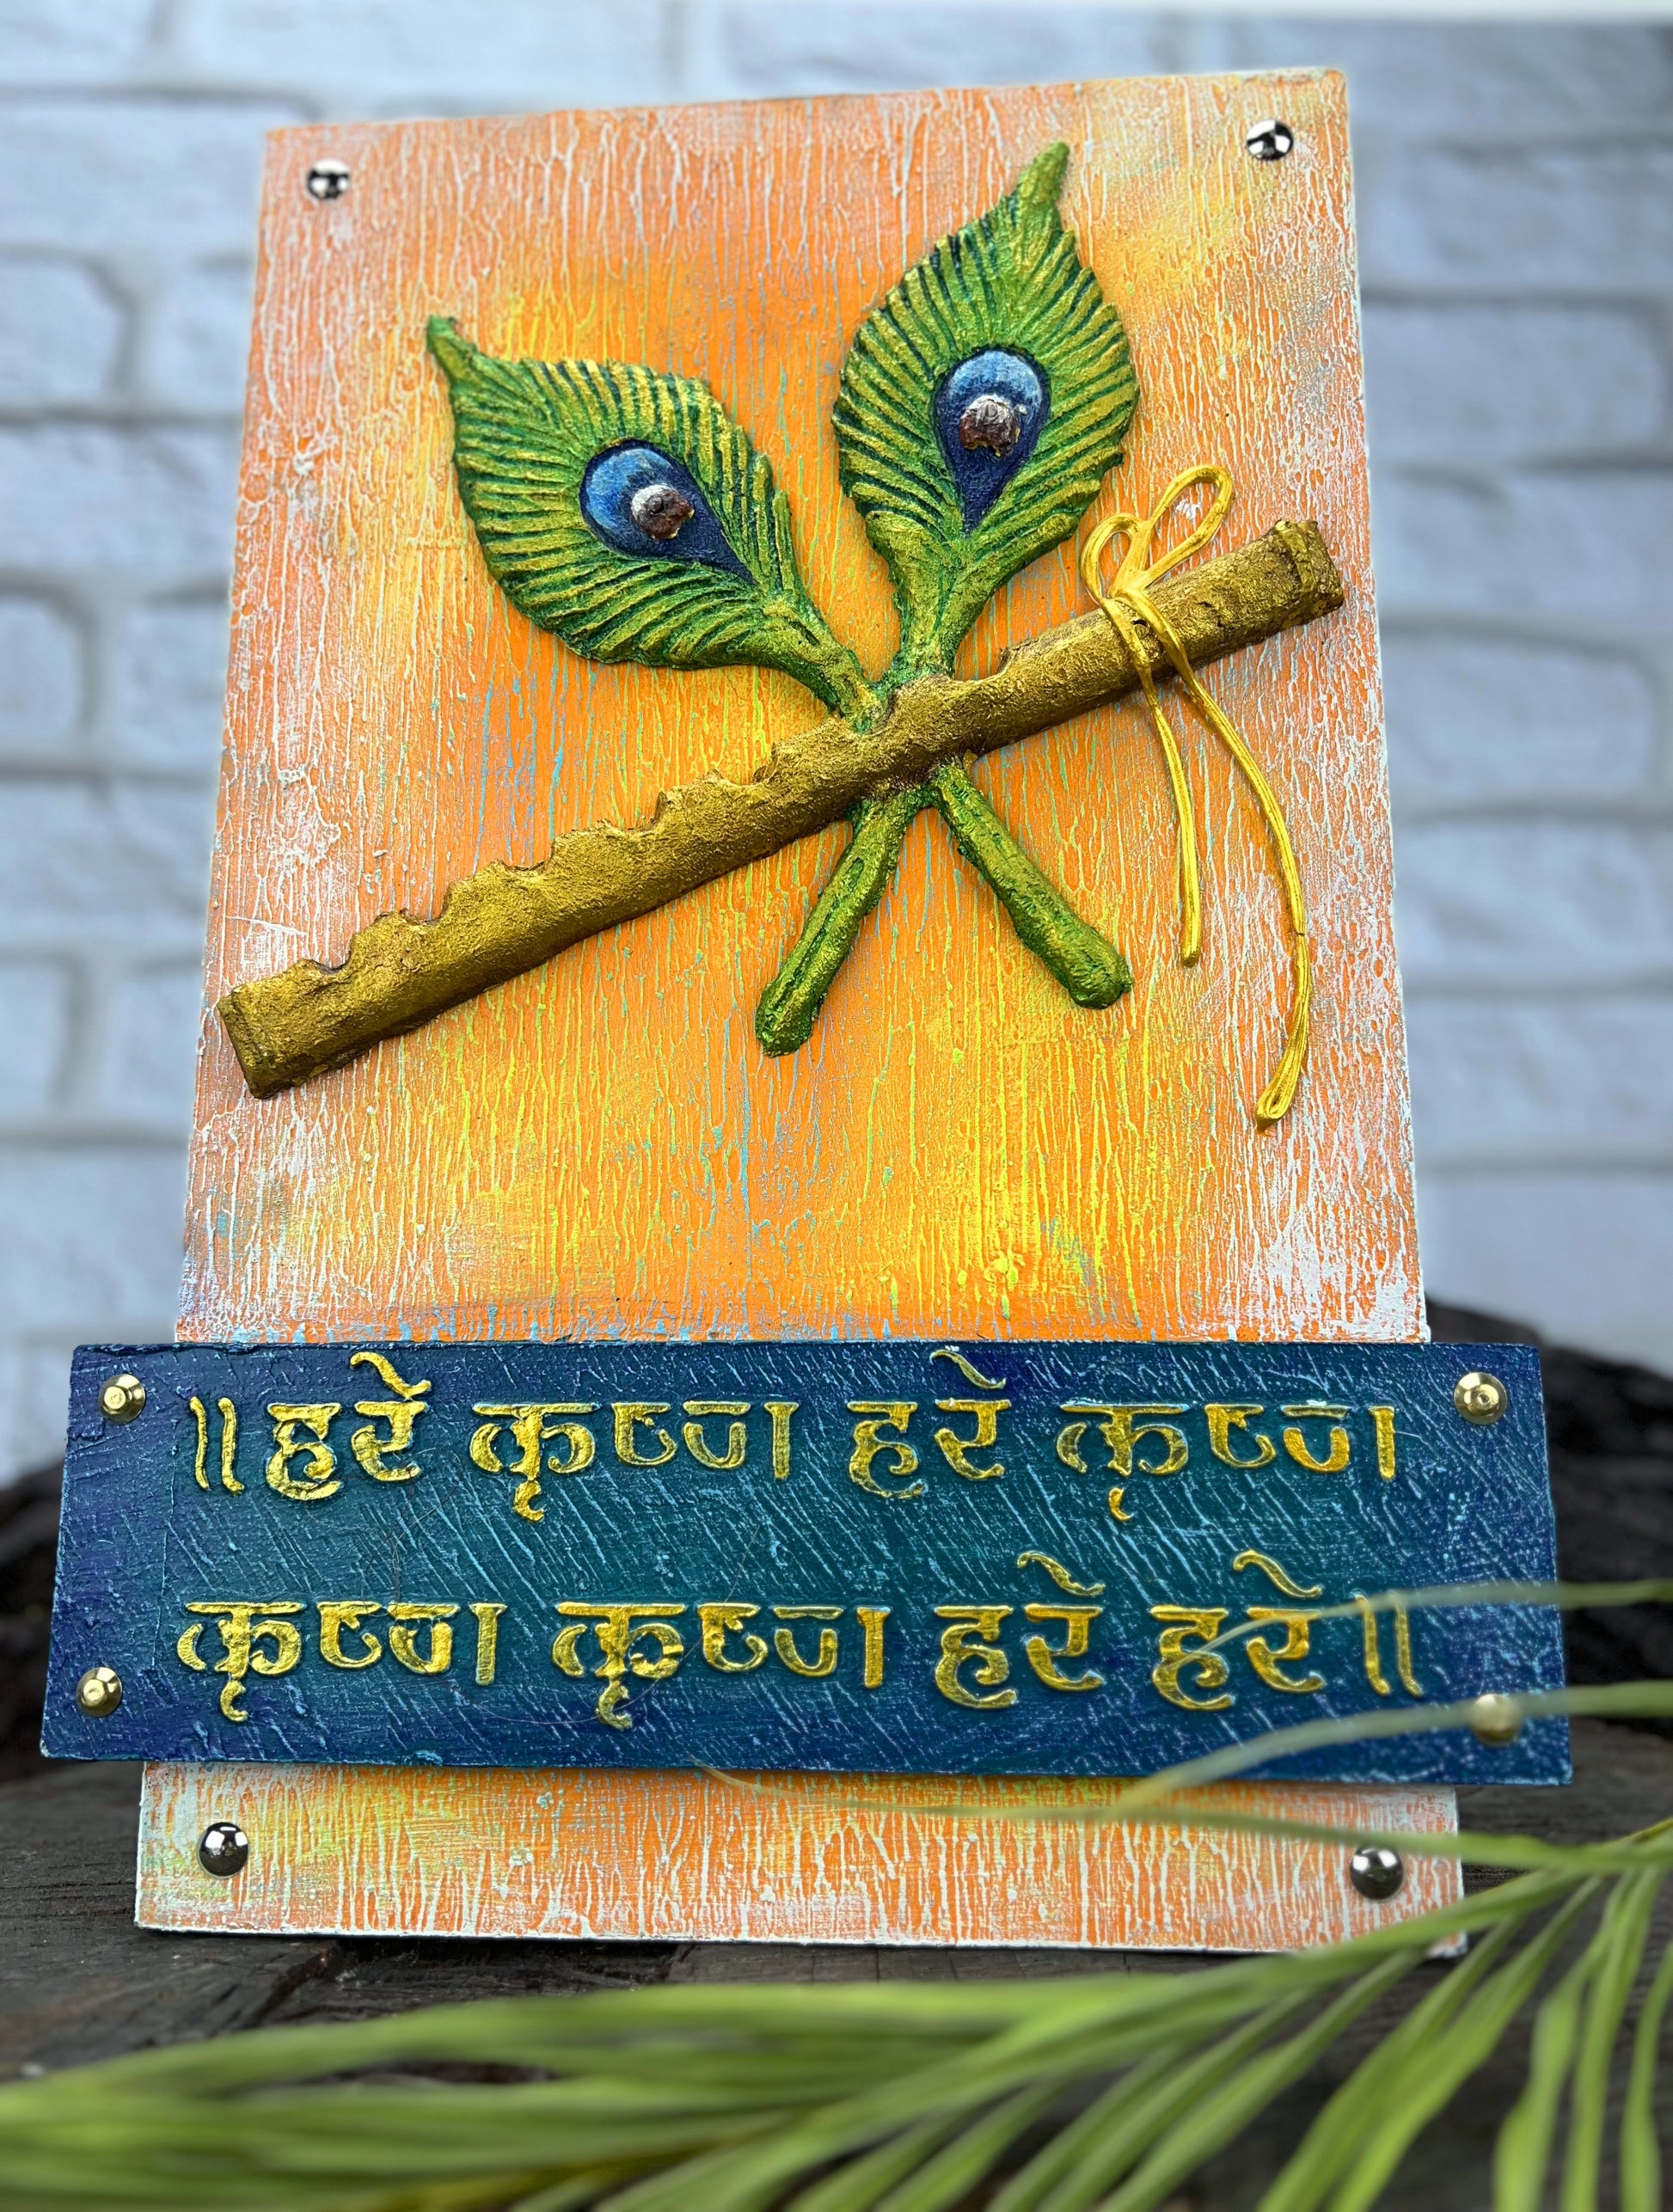 ॥हरे कृष्ण हरे कृष्ण
कृष्ण कृष्ण हरे हरे॥